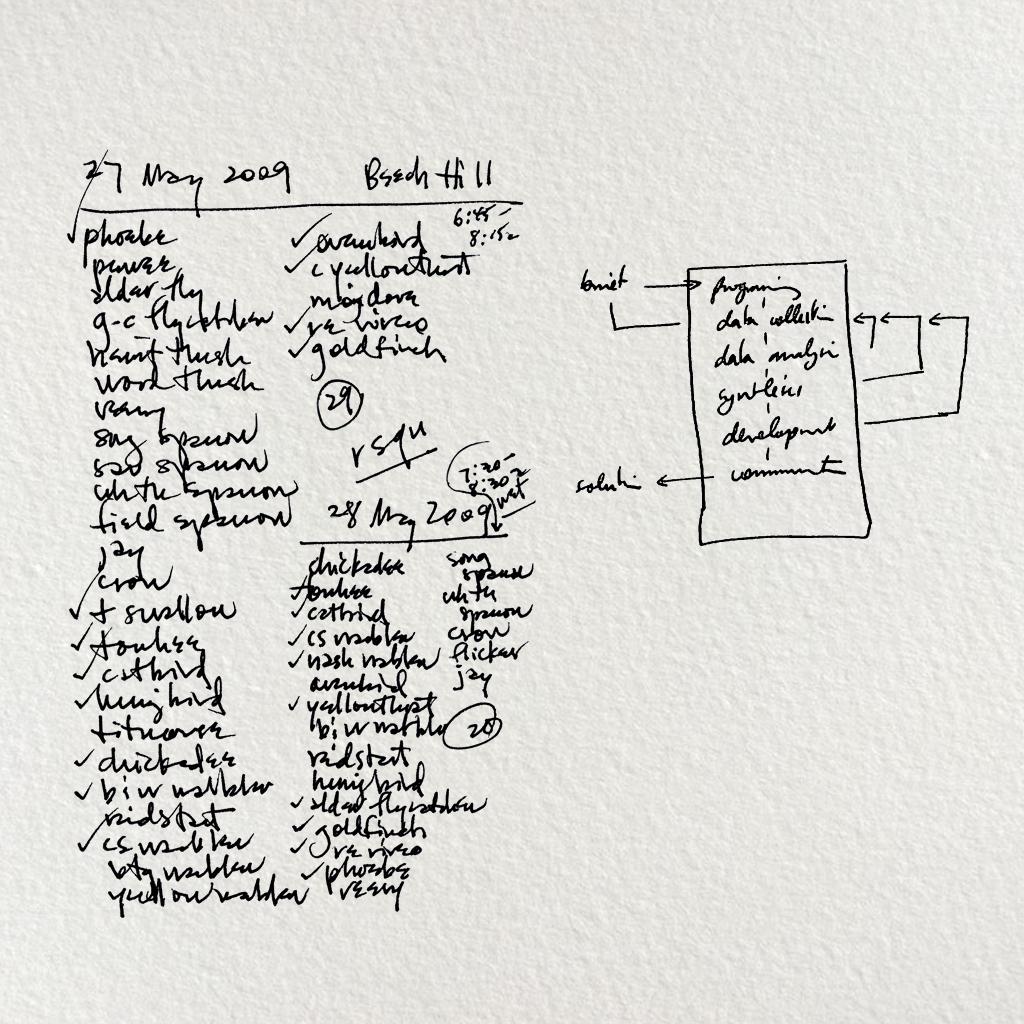 27 May 2009 Beech Hill
6:45-
8:15
phoebe
pewee
alder fly
g-c flycatcher
hermit thrush
wood thrush
veery
song sparrow
sav sparrow
white sparrow
field sparrow
jay
crow
t swallow
towhee
catbird
hummgbird
titmouse
chickadee
b&w warbler
redstart
cs warbler
btg warbler
yellow warbler
ovenbird
c yellowthroat
mo dove
re vireo
goldfinch
29
r squ
28 May 2009
7:20-
8:30
wet
chickadee
towhee
catbird
cs warbler
nash warbler
ovenbird
yellowthroat
b&w warbler
redstart
hummgbird
alder flycatcher
goldfinch
re vireo
phoebe
veery
song
sparrow
white
sparrow
crow
flicker
jay
20
programing
data collection
data analysis
synthesis
development
solution